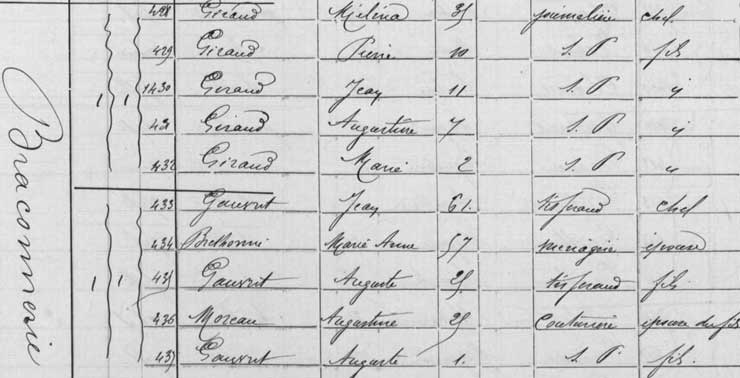 Braconnerie
428 Giraud Mélina 35 journalière chef
429 Giraud Pierre 10 s. P fils
1430 Giraud Jean 11 s. P y
431 Giraud Augustine 7 s. P y
432 Giraud Marie 2 s. P y
433 Gauvrit Jean 61. chef
434 Marie Anne 57 ménagère épouse
435 Gauvrit Auguste 25 fils
436 Moreau Augustine 25 Couturière épouse du fils
437 Gauvrit Auguste 1. s. P. fils
1 1
1 1